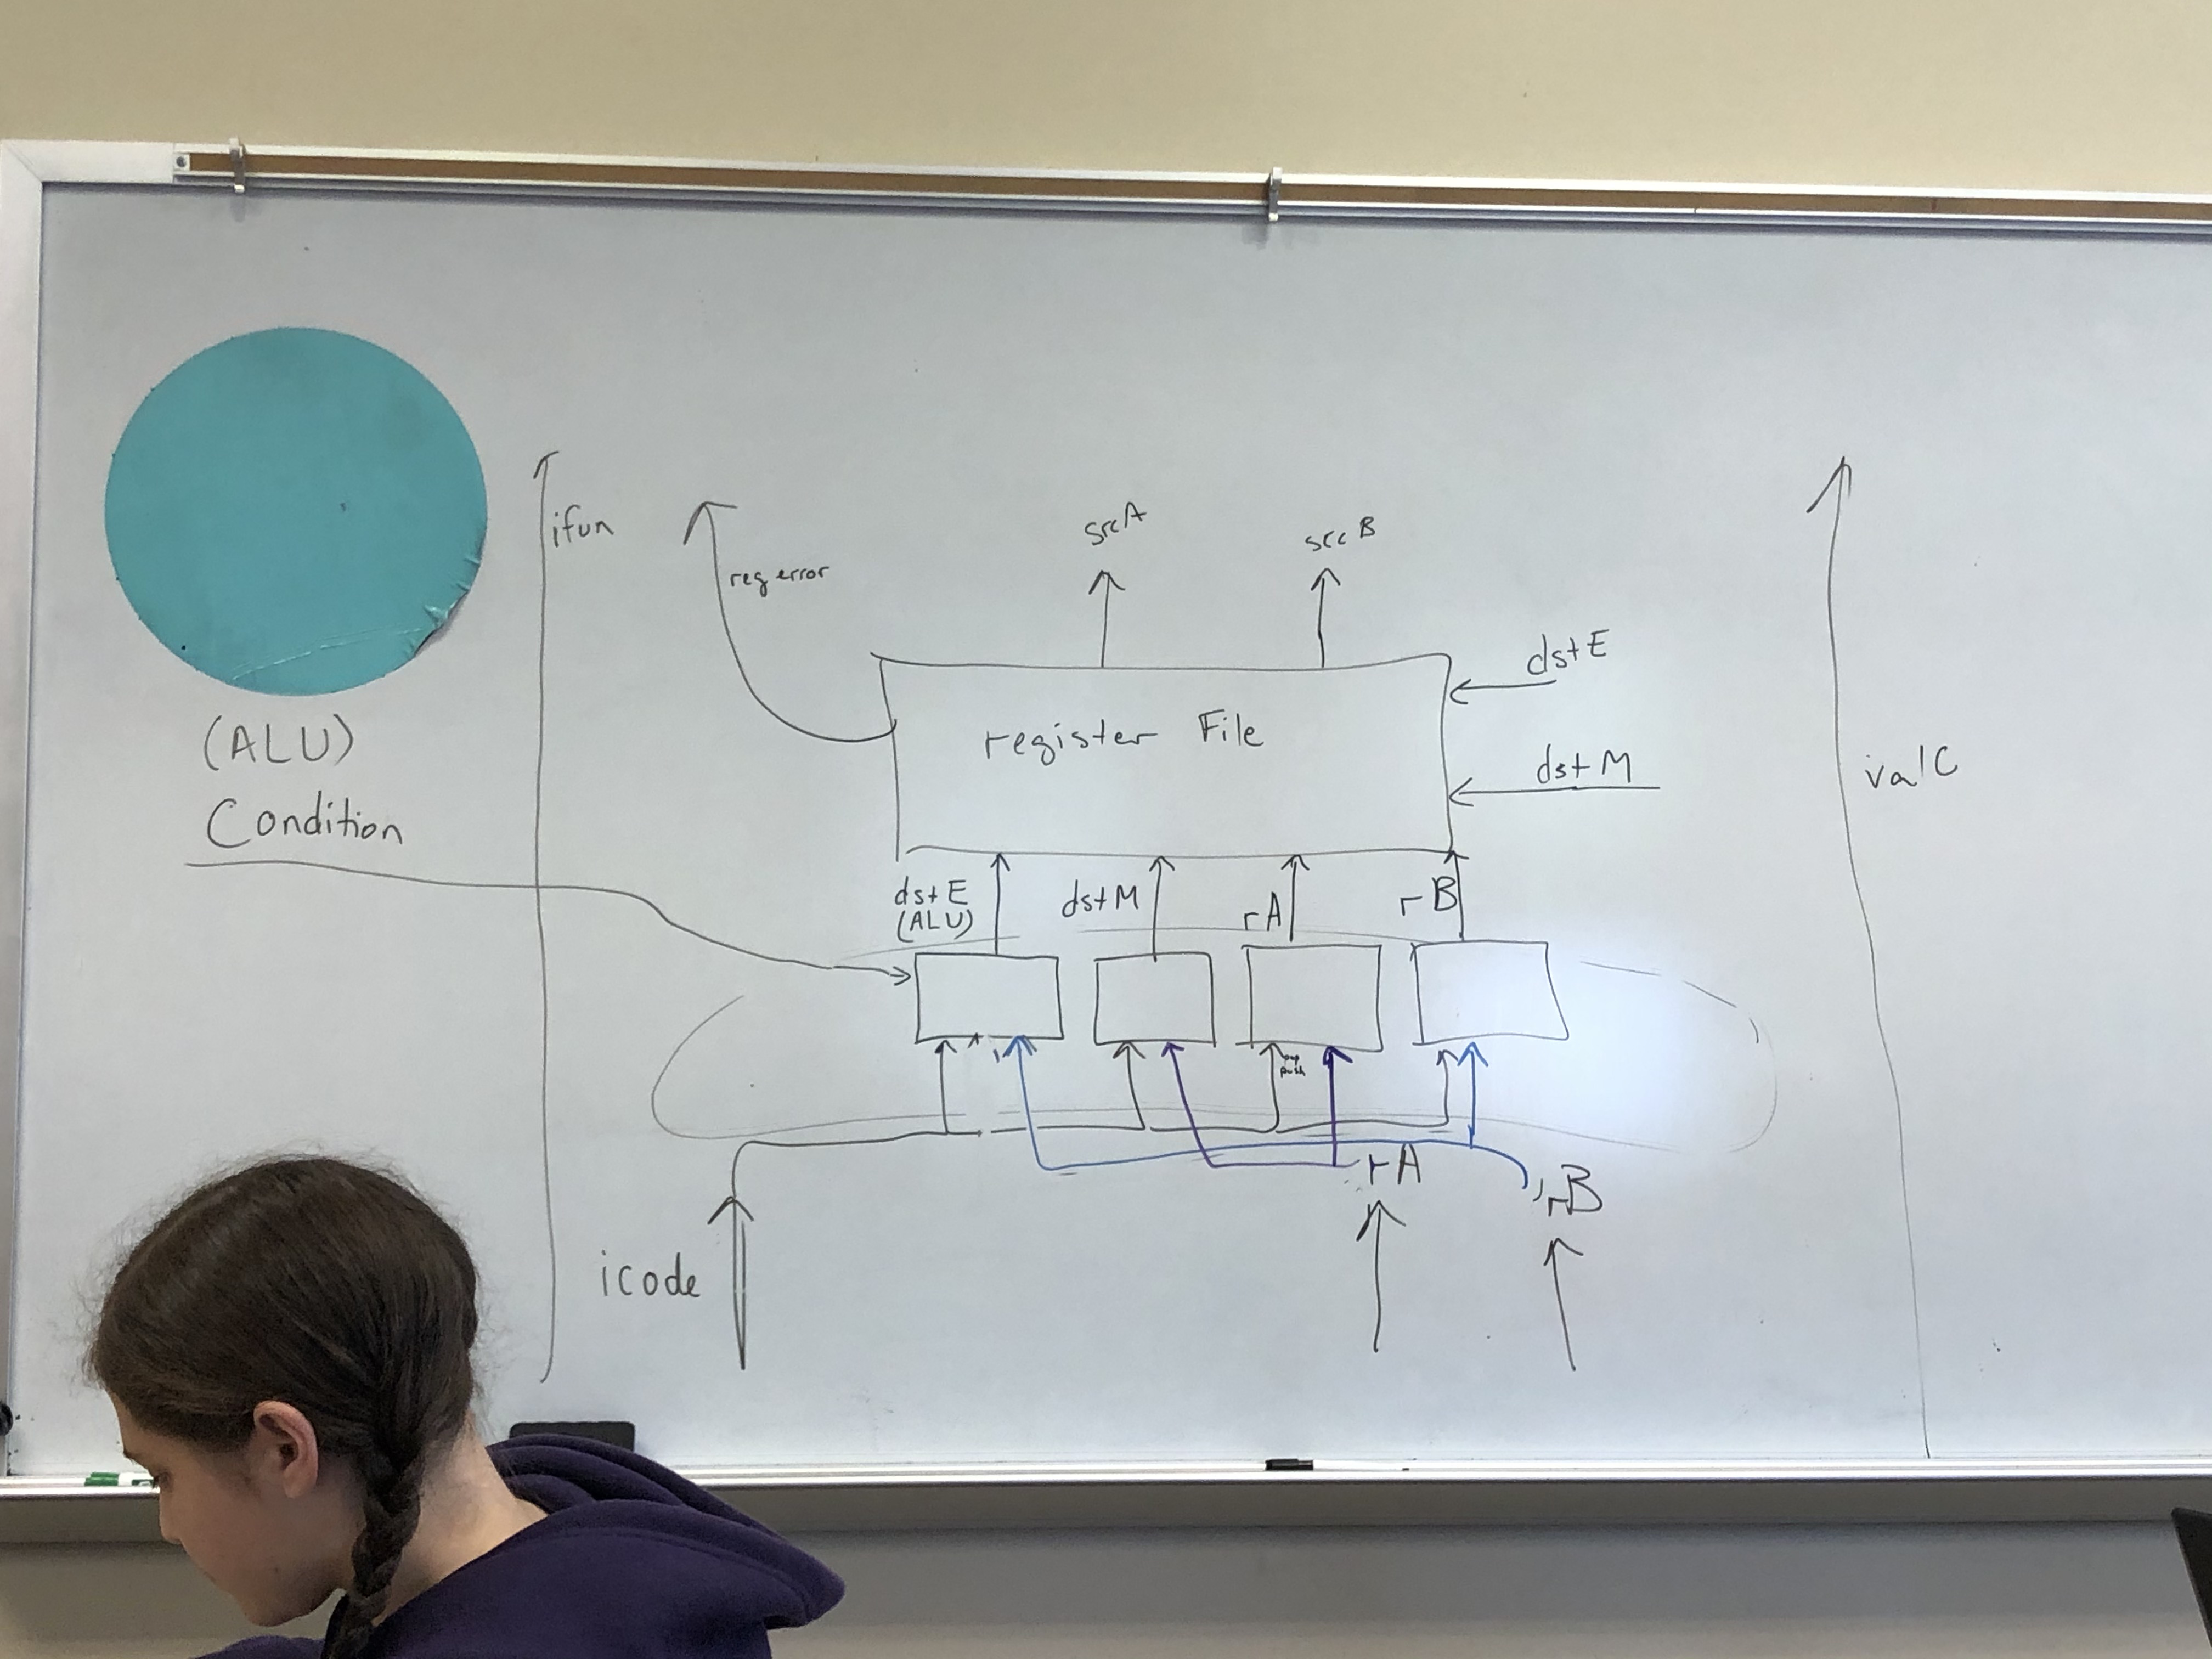 ifun
reg error
srcA
srcB
dstE
register File
dstM
(ALU)
Condition
valC
dstE
(ALU)
dstM
rA
rB
pop
push
rA
rB
icode